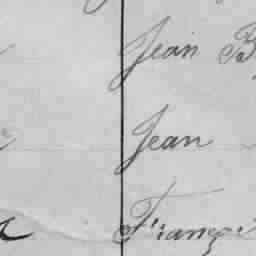 Jean B
Jean
Françoi